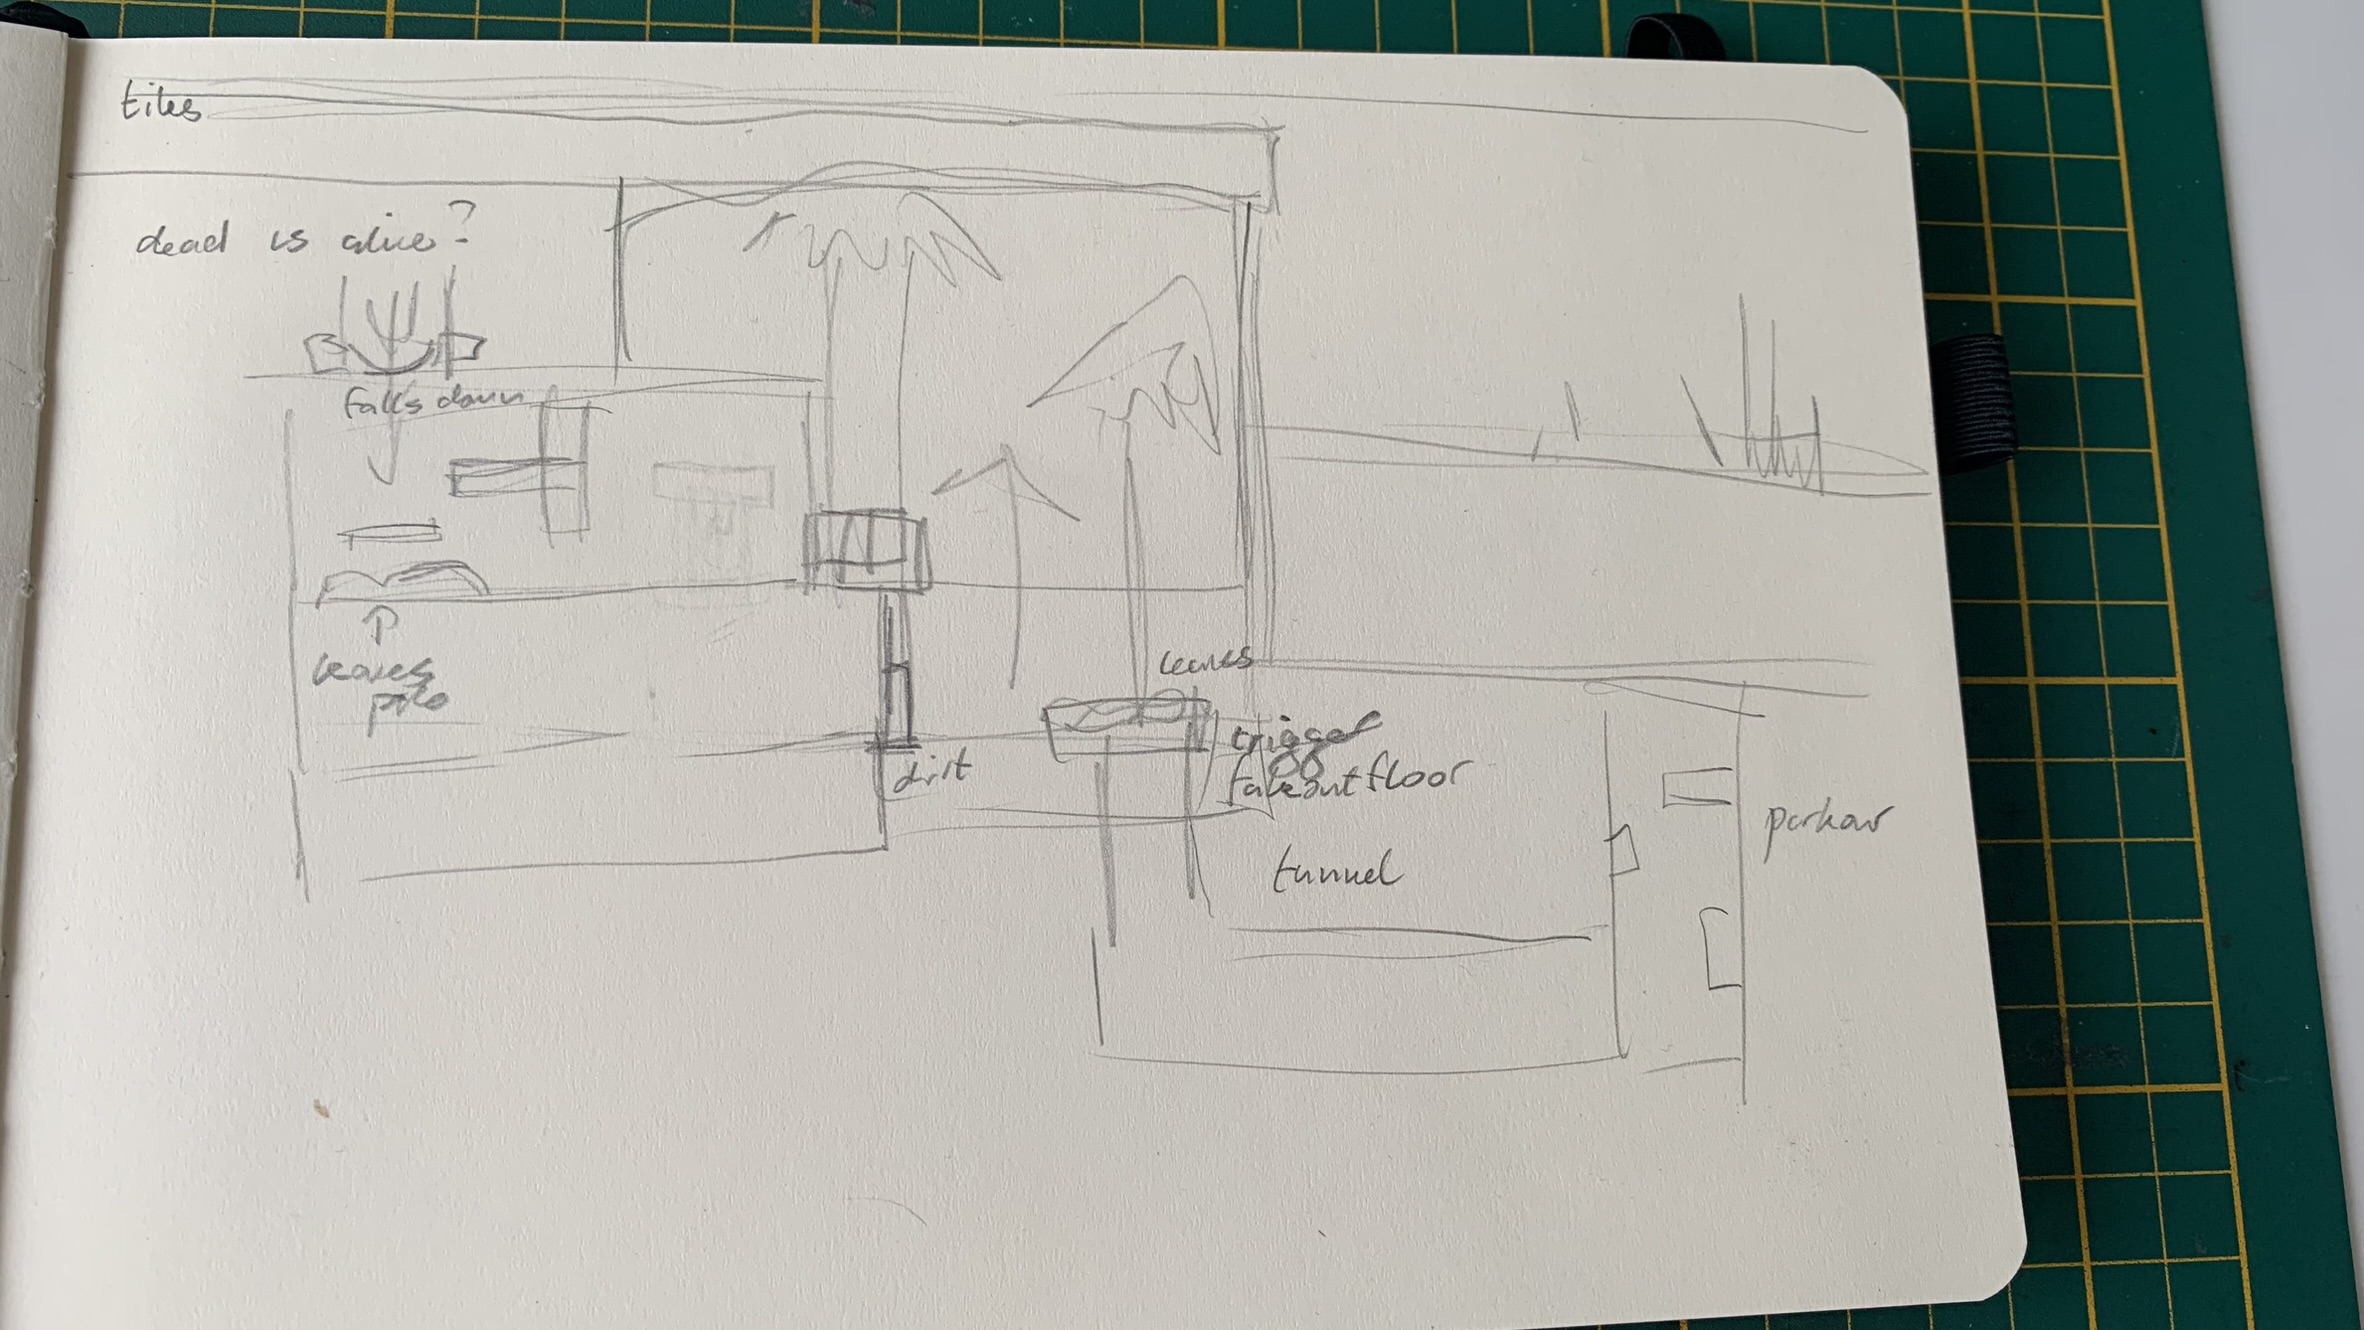 tiles
dead is alive?
falls down
leaves
pile
leaves
trigger
fakeout floor
dirt
tunnel
parkour